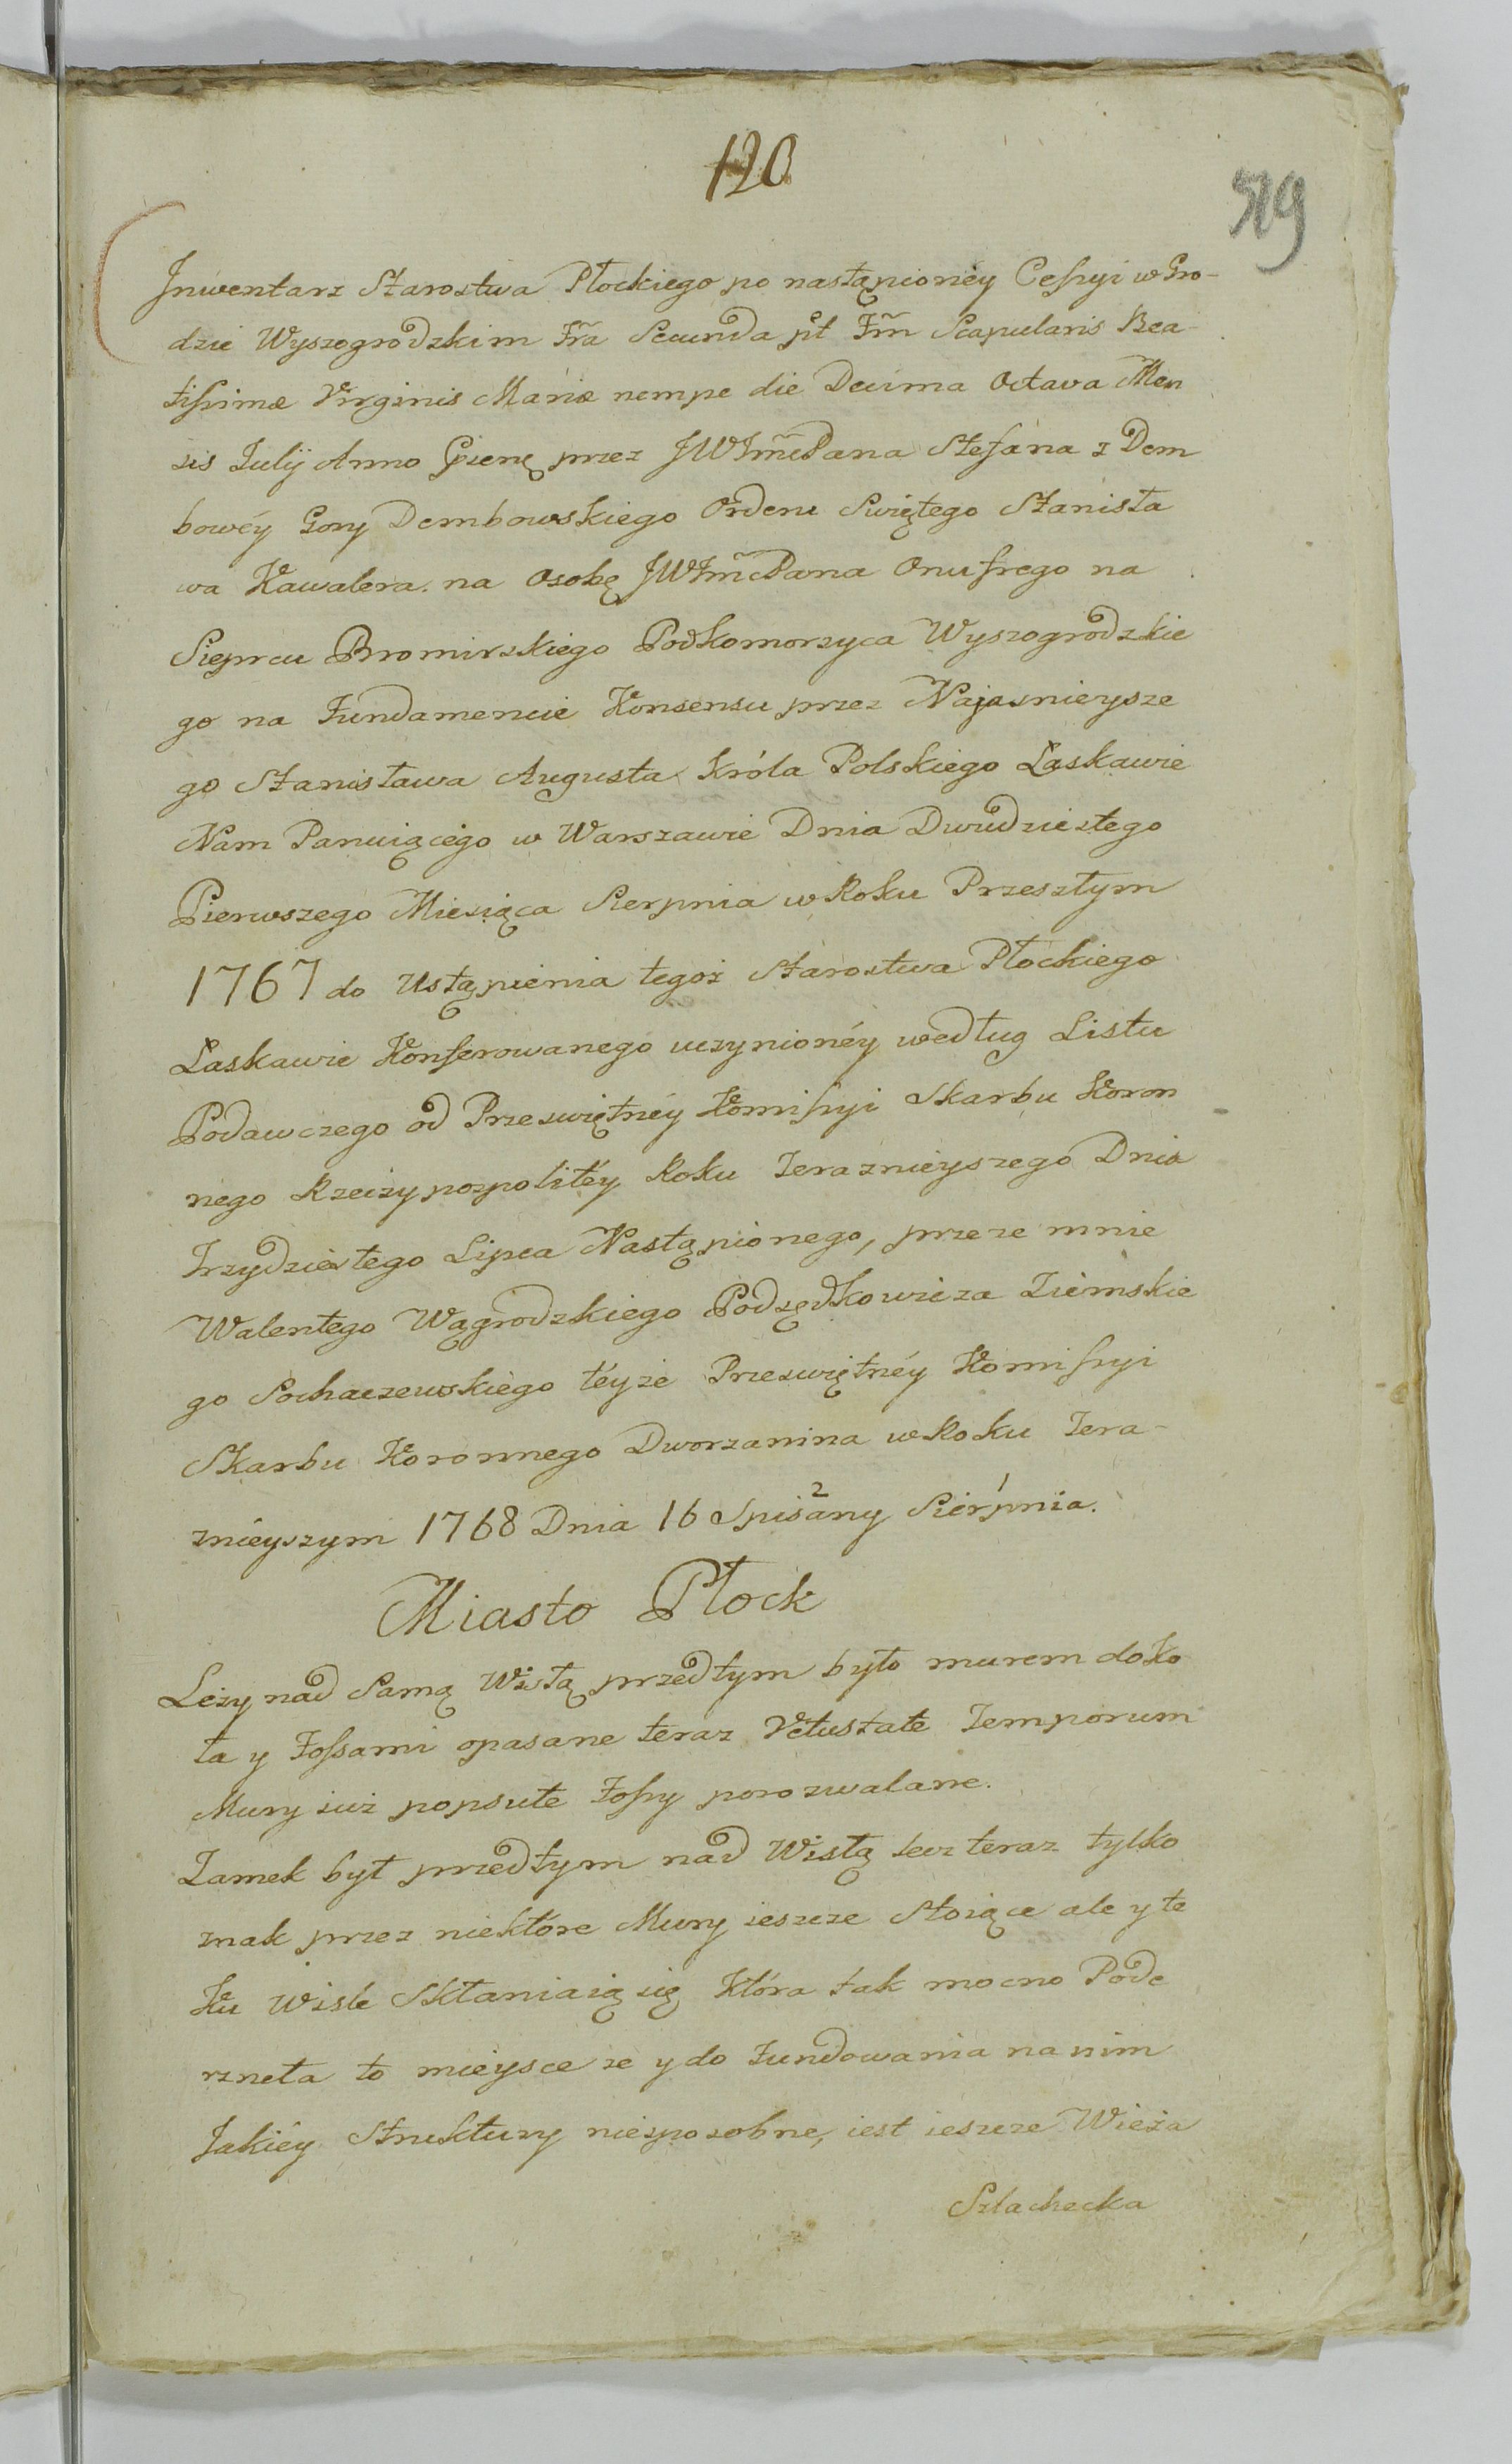 120
519
Inwentarz Starostwa Płockiego po nastąpionéy Cessyi w Gro-
dzie Wyszogrodzkim Fra Secunda pt Fm Scapularis Bea-
tissimæ Virginis Mariæ nempe die Decima Octava Men
sis Julij Anno przez JWJmcPana Stefana z Dem
bowéy Gory Dembowskiego Orderu Swiętego Stanisła
wa Kawalera. na Osobę JWJmcPana Onufrego na
Sieprcu Bromirskiego Podkomorzyca Wyszogrodzkie
go na Fundamencie Konsensu przez Najasnieysze
go Stanisława Augusta Króla Polskiego Łaskawie
Nam Panuiącego w Warszawie Dnia Dwudziestego
Pierwszego Miesiąca Sierpnia w Roku Przeszłym
1767 do Ustąpienia tegoż Starostwa Płockiego
Łaskawie Konferowanego uczynionéy według Listu
Podawczego od Przeswiętnéy Komissyi Skarbu Koron
nego Rzeczypospolitéy Roku Teraznieyszego Dnia
Trzydziestego Lipca Nastąpionego, przeze mnie
Walentego Wągrodzkiego Podsędkowicza Ziemskie
go Sochaczewskiego téyże Przeswiętnéy Komissyi
Skarbu Koronnego Dworzanina w Roku Tera-
znieyszym 1768 Dnia 16 Spisany 2 Sierpnia. 1
Miasto Płock
Leży nad Samą Wisłą przedtym było murem doko
ła y Fossami opasane teraz Vetustate Temporum
Mury iuż popsute Fossy porozwalane.
Zamek był przedtym nad Wisłą lecz teraz tylko
znak przez niektóre Mury ieszcze Stoiące ale y te
Ku Wisle Skłaniaią się Która tak mocno Pode
rzneła to mieysce że y do Fundowania na nim
Jakiéy Struktury niesposobne, iest ieszcze Wieża
Szlachecka